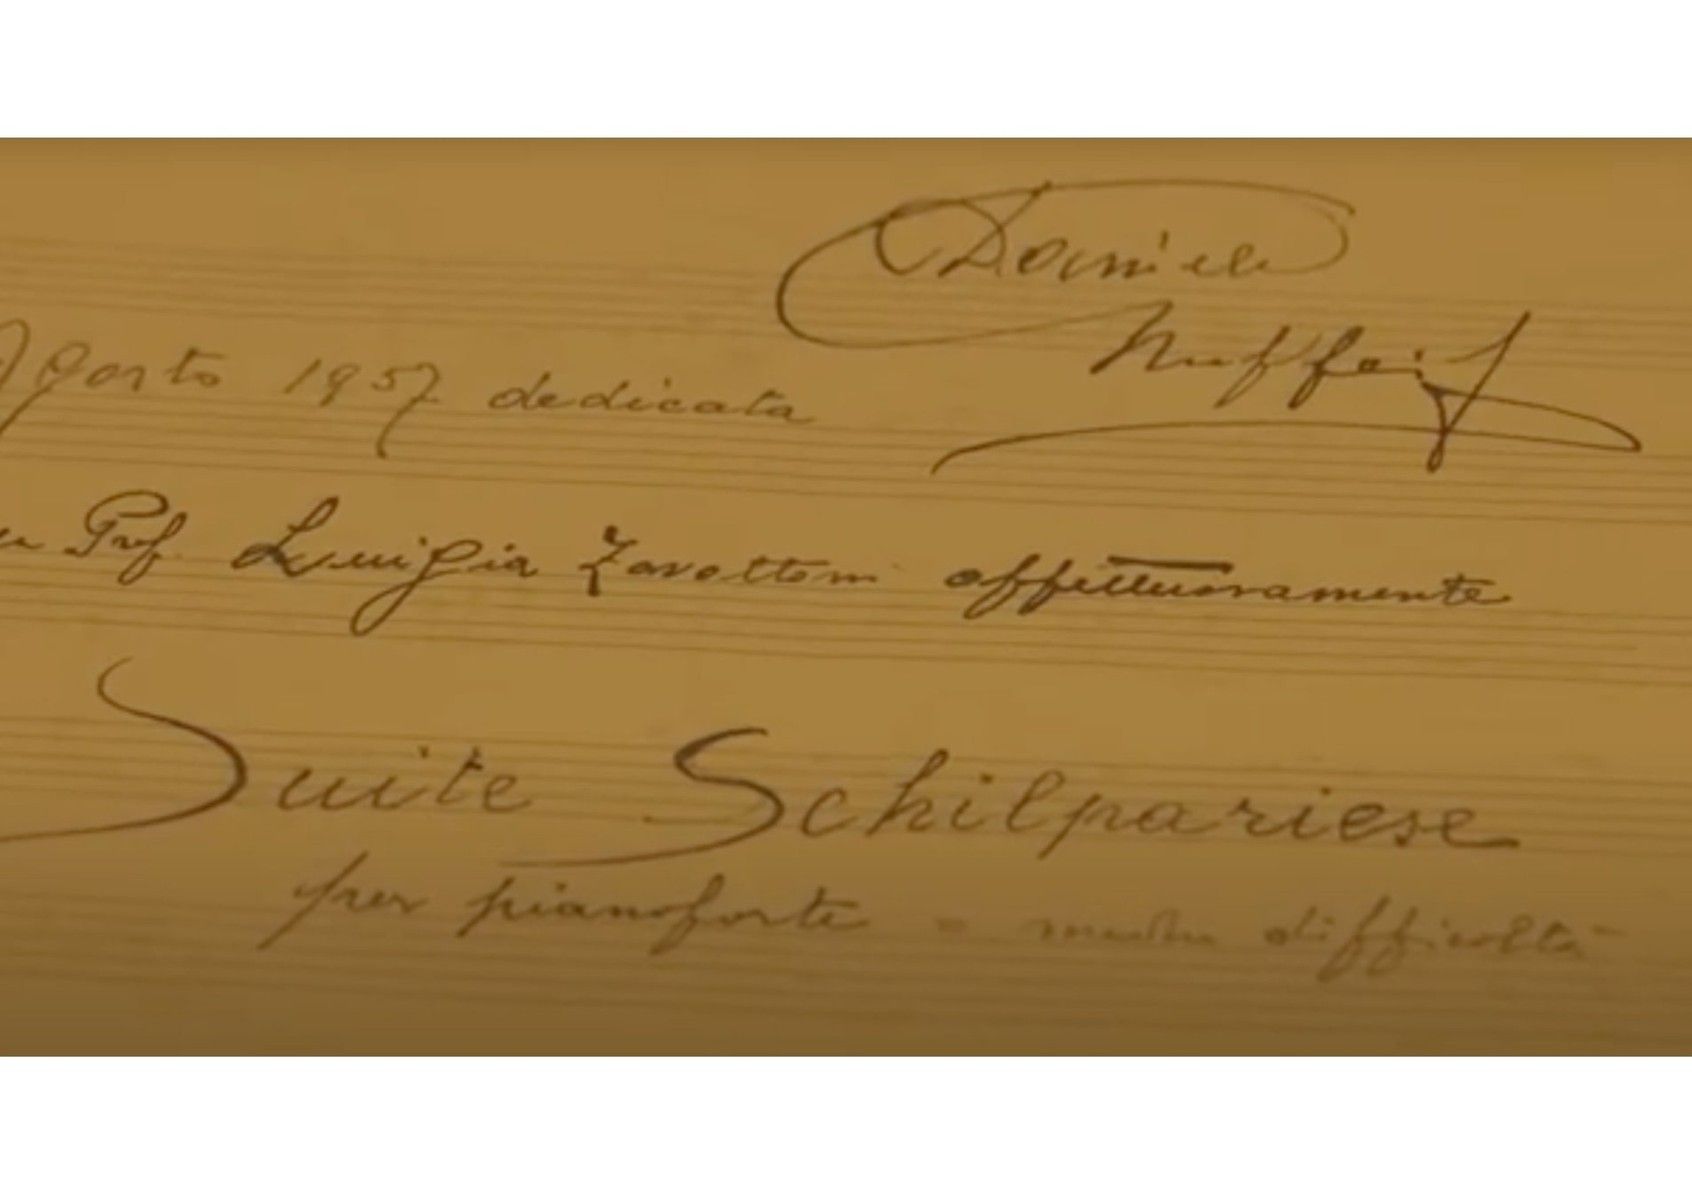 Daniele
Maffeis
Agosto 1957 dedicata
Prof. Luigia Zavottoni affettuosamente
Suite Schilpariese
per pianoforte = media difficoltà